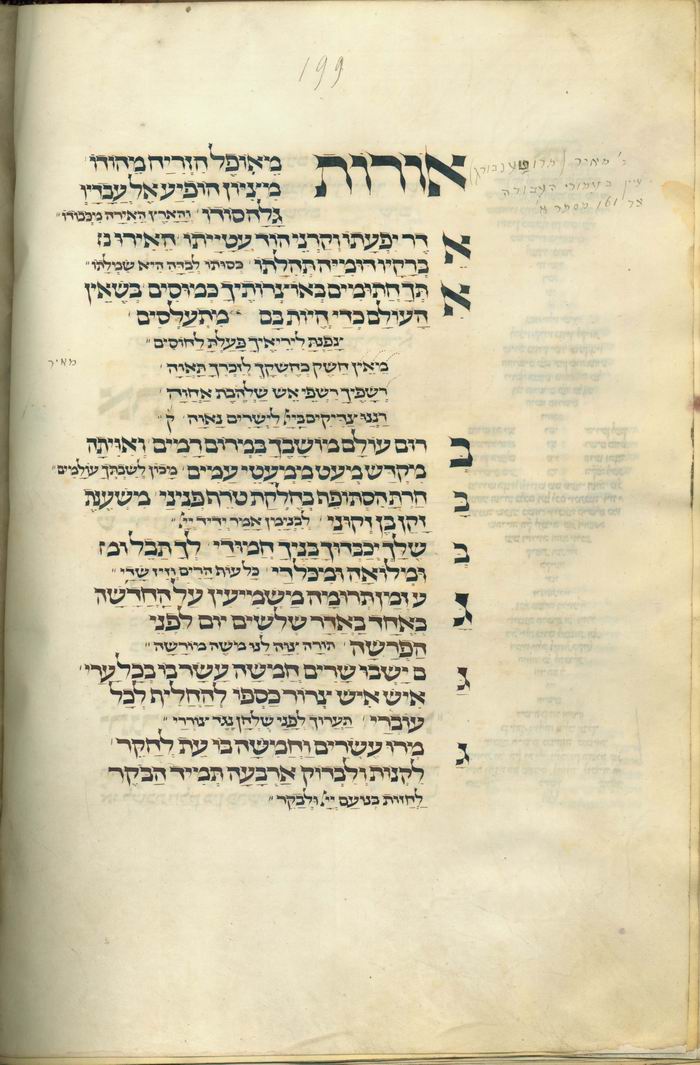 199
אורות מאופל הזריח מהודו
מציון הופיע אל עבדיו
גלה סודו והארץ האירה מכבודו
אדר יפעתו וקרני הוד עטייתו האירו נז
ברקיו רומיה תהלתו כסותו לבדה היא שמלתו
אתך חתומים באוצרותיך כמוסים בשאין
העולם כדי היות בם מתעלסים
צפנת ליריאיך פעלת לחוסים
מאין חשק בחשקך לזכרך תאוה
רשפיך רשפי אש שלהבת אחוה
רננו צדיקים ביי לישרים נאוה ק
מאיר
ברום עולם מושבך במרום רמים ואויתה
מיקדש מעט ממעטי עמים מכון לשבתך עולמים
בחרתה סתופת בחלקת טרף פניני משענת
זקן בן זקוני לבנימין אמר ידיד יי
בשלך יכברוך בניך חמודי לך תבל ומ
ומילואה ומכלרי כל עות הרים וזיז שדי
געזמן תרומה משמיעין על החדשה
באחד באדר שלשים יום לפני
הפרשה תורה צוה לנו משה מורשה
גם ישבו שרים חמשה עשר בו בכל ערי
איש איש צרור כספו להחלית לכל
עוברי תערוך לפני שלחן נגד צוררי
גמירו עשרים וחמשה בו עת לחקר
לקנות ולבדוק ארבעה תמיד הבקר
לחזות בנועם יי ולבקר